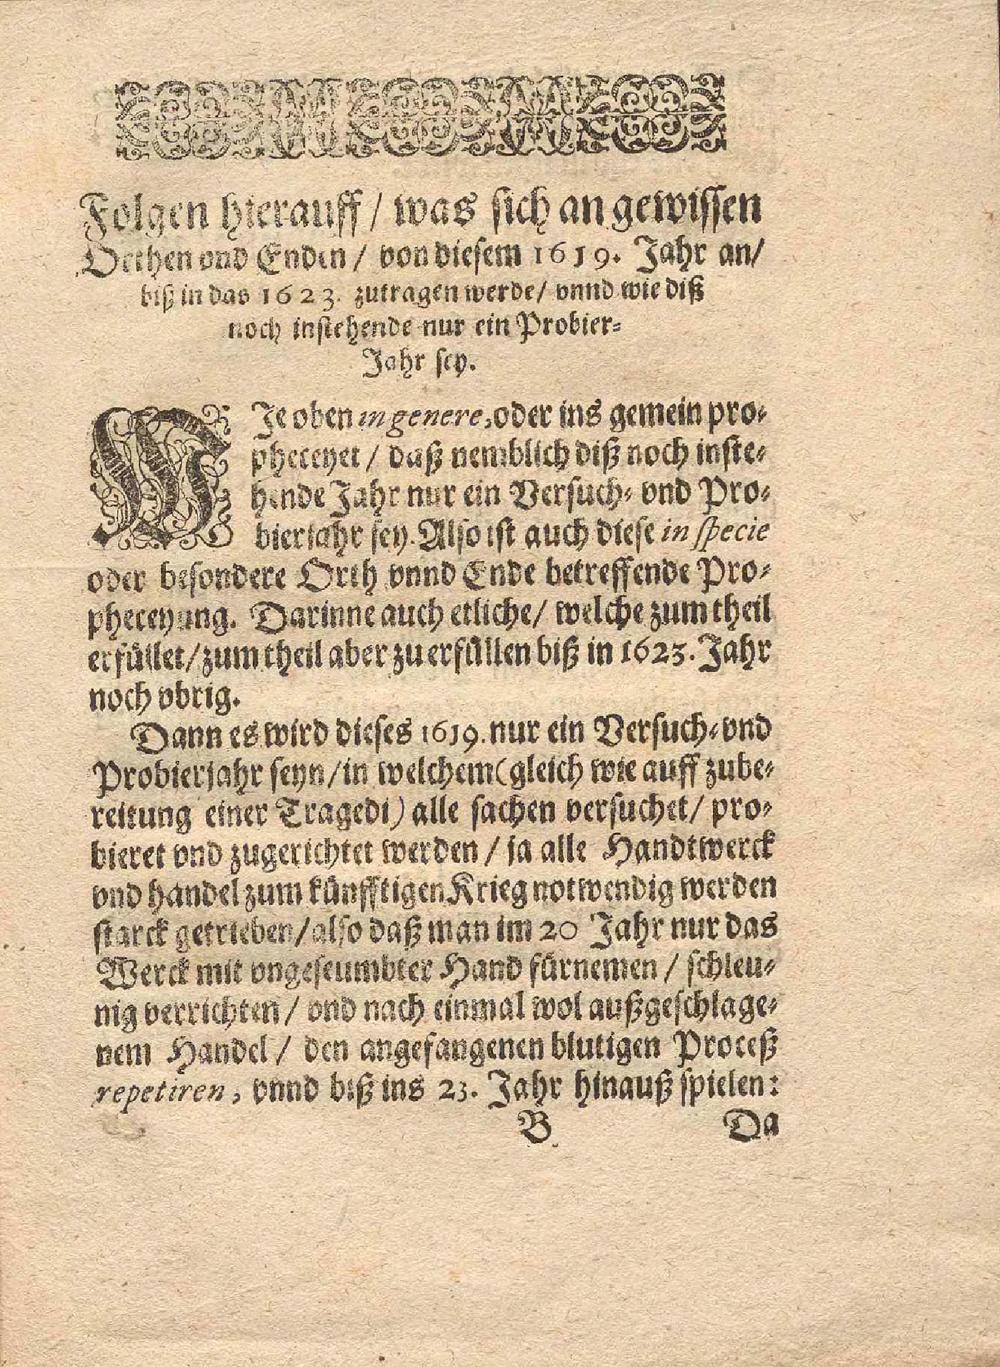 Folgen hierauff / was sich an gewissen
Orthen vnd Enden / von diesem 1619. Jahr an /
biß in das 1623. zutragen werde / vnnd wie diß
noch instehende nur ein Probier=
Jahr sey.
WJe oben in genere, oder ins gemein pro=
pheceyet / daß nemblich diß noch inste=
hende Jahr nur ein Versuch= vnd Pro=
bierjahr sey. Also ist auch diese in specie
oder besondere Orth vnnd Ende betreffende Pro=
pheceyung. Darinne auch etliche / welche zum theil
erfüllet / zum theil aber zu erfüllen biß in 1623. Jahr
noch vbrig.
Dann es wird dieses 1619. nur ein Versuch= vnd
Probierjahr seyn / in welchem (gleich wie auff zube=
reitung einer Tragedi) alle sachen versuchet / pro=
bieret vnd zugerichtet werden / ja alle Handtwerck
vnd handel zum künfftigen Krieg notwendig werden
starck getrieben / also daß man im 20 Jahr nur das
Werck mit vngeseumbter Hand fürnemen / schleu=
nig verrichten / vnd nach einmal wol außgeschlage=
nem Handel / den angefangenen blutigen Proceß
repetiren, vnnd biß ins 23. Jahr hinauß spielen:
B Da